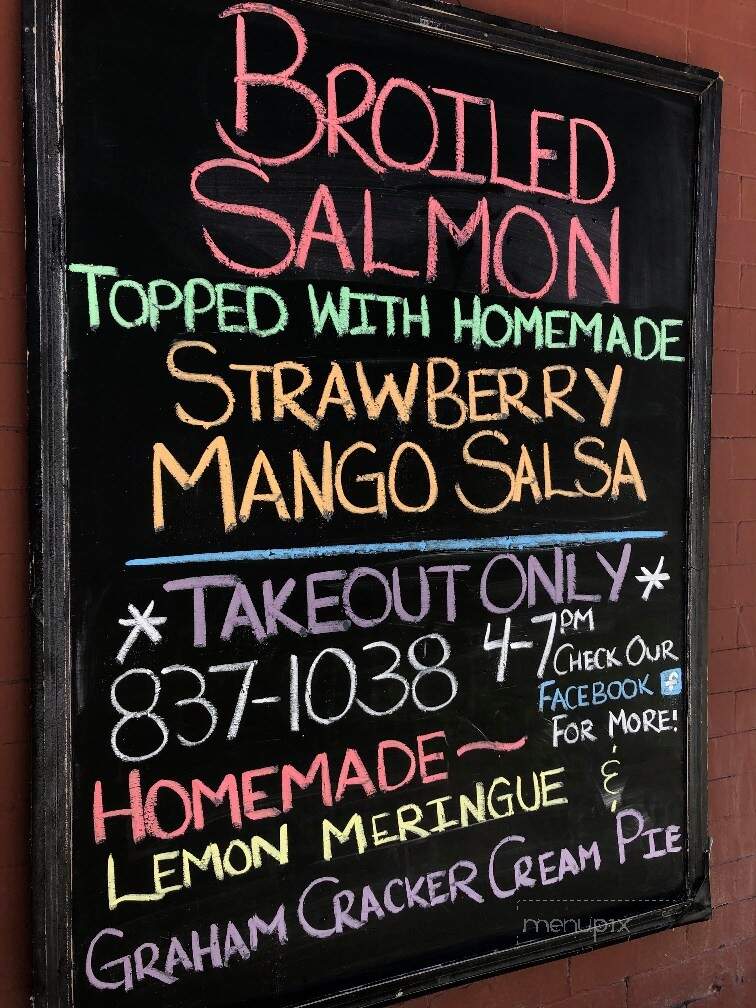 BROILED
SALMON
TOPPED WITH HOMEMADE
STRAWBERRY
MANGO SALSA
*TAKEOUT ONLY*
837-1038 4-7PM
CHECK OUR
FACEBOOK f
FOR MORE!
HOMEMADE~
LEMON MERINGUE &
GRAHAM CRACKER CREAM PIE
menupix